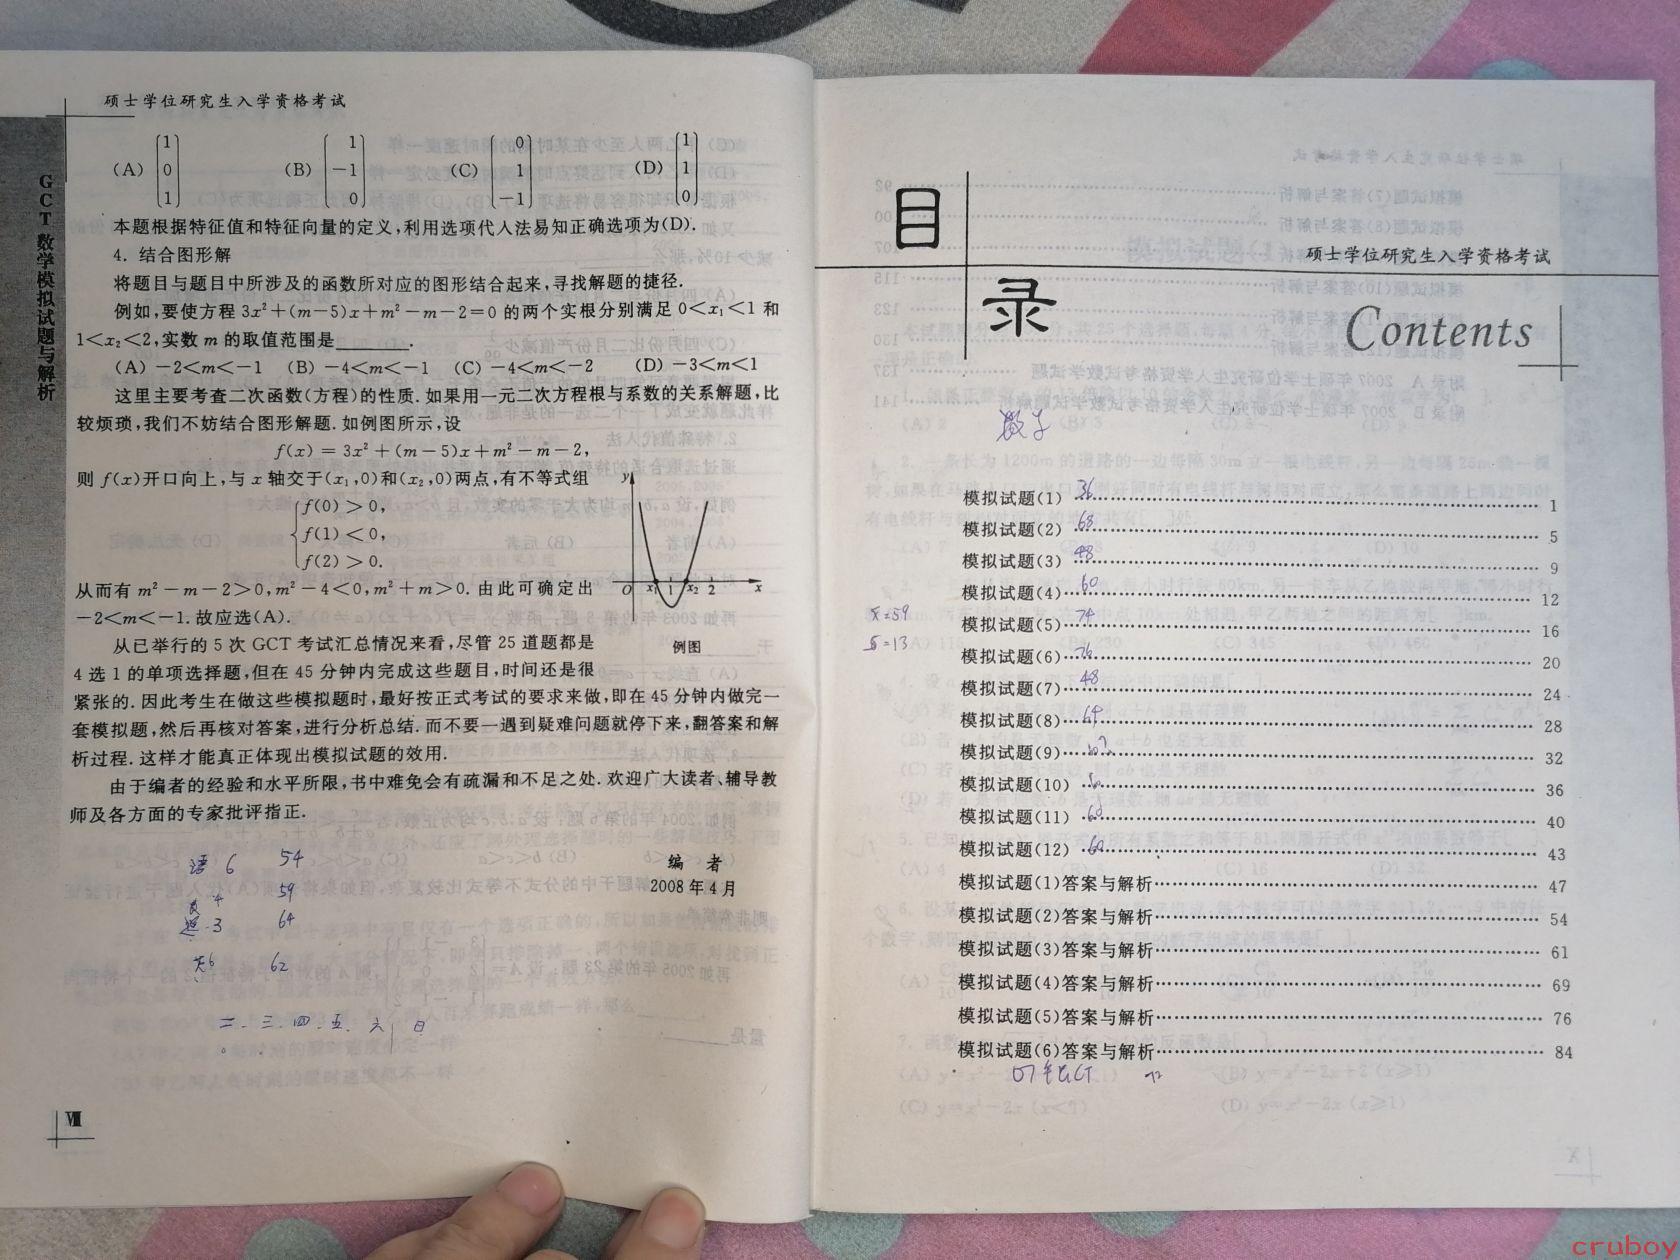 硕士学位研究生入学资格考试
GCT数学模拟试题与解析
(A) [1 0 1] (B) [1 -1 0] (C) [0 1 -1] (D) [1 1 0]
本题根据特征值和特征向量的定义,利用选项代人法易知正确选项为(D).
4. 结合图形解
将题目与题目中所涉及的函数所对应的图形结合起来,寻找解题的捷径.
例如,要使方程 3x²+(m-5)x+m²-m-2=0 的两个实根分别满足 0<x₁<1 和
1<x₂<2,实数 m 的取值范围是______.
(A) -2<m<-1 (B) -4<m<-1 (C) -4<m<-2 (D) -3<m<1
这里主要考查二次函数(方程)的性质.如果用一元二次方程根与系数的关系解题,比
较烦琐,我们不妨结合图形解题.如例图所示,设
f(x)=3x²+(m-5)x+m²-m-2,
则 f(x)开口向上,与 x 轴交于(x₁,0)和(x₂,0)两点,有不等式组
f(0)>0,
f(1)<0,
f(2)>0.
从而有 m²-m-2>0,m²-4<0,m²+m>0.由此可确定出
-2<m<-1.故应选(A).
y
O x₁ 1 x₂ 2 x
例图
从已举行的 5 次 GCT 考试汇总情况来看,尽管 25 道题都是
4 选 1 的单项选择题,但在 45 分钟内完成这些题目,时间还是很
紧张的.因此考生在做这些模拟题时,最好按正式考试的要求来做,即在 45 分钟内做完一
套模拟题,然后再核对答案,进行分析总结.而不要一遇到疑难问题就停下来,翻答案和解
析过程.这样才能真正体现出模拟试题的效用.
由于编者的经验和水平所限,书中难免会有疏漏和不足之处.欢迎广大读者、辅导教
师及各方面的专家批评指正.
编 者
2008 年 4 月
语 6 54
4 59
3 64
6 62
二.三.四.五.六 日
Ⅷ
目
录
硕士学位研究生入学资格考试
Contents
数学
模拟试题(1) 36 …… 1
模拟试题(2) 68 …… 5
模拟试题(3) 48 …… 9
模拟试题(4) 60 …… 12
x̄=59
s=13
模拟试题(5) 74 …… 16
模拟试题(6) 76 …… 20
模拟试题(7) 48 …… 24
模拟试题(8) 64 …… 28
模拟试题(9) …… 32
模拟试题(10) …… 36
模拟试题(11) 60 …… 40
模拟试题(12) 60 …… 43
模拟试题(1)答案与解析 …… 47
模拟试题(2)答案与解析 …… 54
模拟试题(3)答案与解析 …… 61
模拟试题(4)答案与解析 …… 69
模拟试题(5)答案与解析 …… 76
模拟试题(6)答案与解析 …… 84
cruboy